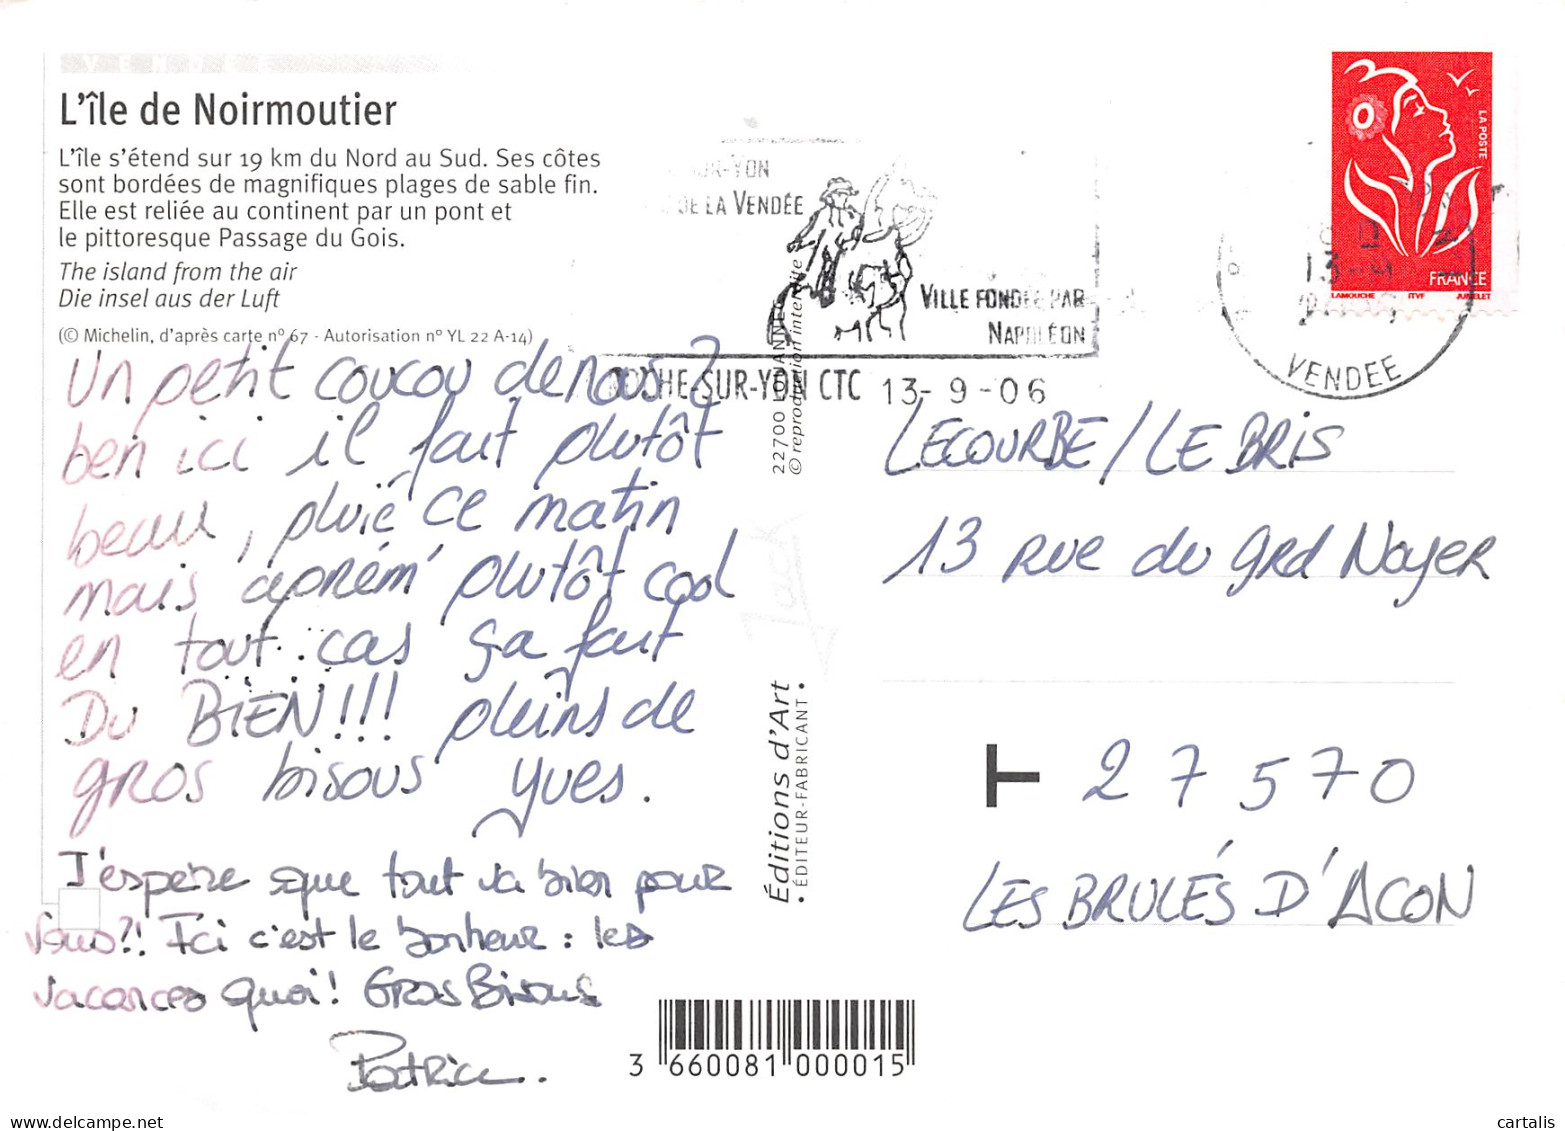 VENDÉE
L'île de Noirmoutier
L'île s'étend sur 19 km du Nord au Sud. Ses côtes
sont bordées de magnifiques plages de sable fin.
Elle est reliée au continent par un pont et
le pittoresque Passage du Gois.
The island from the air
Die insel aus der Luft
(© Michelin, d'après carte nº 67 - Autorisation nº YL 22 A-14)
Un petit coucou de nous ?
ben ici il fait plutôt
beau, pluie ce matin
mais aprèm' plutôt cool
en tout cas ça fait
Du BIEN!!! pleins de
gros bisous yves.
J'espère que tout va bien pour
vous?! Ici c'est le bonheur : les
vacances quoi! Gros Bisous
Patrice.
SUR-YON
DE LA VENDÉE
VILLE FONDÉE PAR
NAPOLÉON
ROCHE-SUR-YON CTC 13-9-06
22700 LOUANNEC
© reproduction interdite
Jack
Éditions d'Art
ÉDITEUR-FABRICANT
LA POSTE
FRANCE
LAMOUCHE ITVF JUMELET
13-9
VENDEE
LECOURBE/LE BRIS
13 rue du grd Noyer
27570
LES BRULÉS D'ACON
3 660081 000015
cartalis
delcampe.net